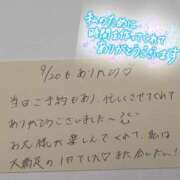 私のために
時間を作ってくれて
ありがとうございます
9/20もありたり♡
当日ご予約もあり、忙しくさせてくれて
ありがとうございました〜
お兄様が楽しんでくれて、私は
大満足の1日でした♡また会いたい!